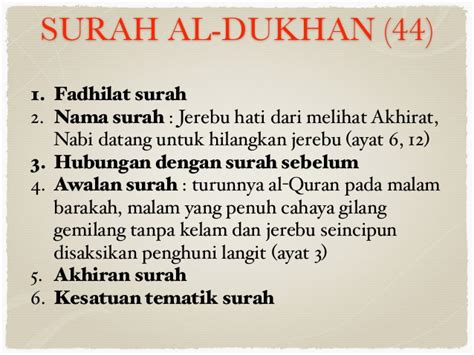 SURAH AL-DUKHAN (44)
1. Fadhilat surah
2. Nama surah : Jerebu hati dari melihat Akhirat,
Nabi datang untuk hilangkan jerebu (ayat 6, 12)
3. Hubungan dengan surah sebelum
4. Awalan surah : turunnya al-Quran pada malam
barakah, malam yang penuh cahaya gilang
gemilang tanpa kelam dan jerebu seincipun
disaksikan penghuni langit (ayat 3)
5. Akhiran surah
6. Kesatuan tematik surah